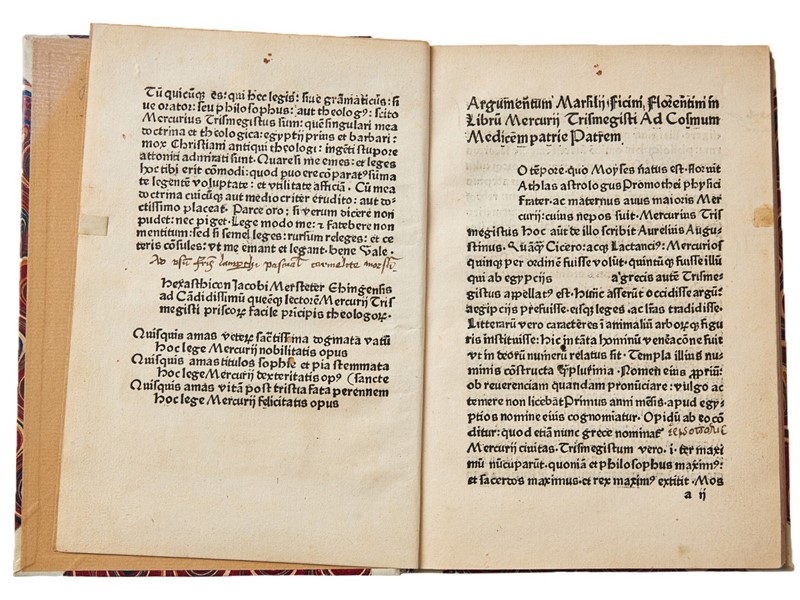 Tū quicūqꝫ es: qui hec legis: siue grāmaticus: si
ue orator: seu philosophus: aut theologꝰ: scito
Mercurius Trismegistus sum: quē singulari mea
doctrina et theologica: egyptij prius et barbari:
mox Christiani antiqui theologi: ingēti stupore
attoniti admirati sunt. Quare si me emes: et leges
hoc tibi erit cōmodi: quod paruo ere cōparatꝰ sūma
te legentē voluptate: et vtilitate afficiā. Cū mea
doctrina cuicūqꝫ aut mediocriter erudito: aut do-
ctissimo placeat. Parce oro: si verum dicere non
pudet: nec piget. Lege modo me: et fatebere non
mentitum: sed si semel leges: rursum releges: et ce
teris cōsules: vt me emant et legant. bene Vale.
Hexasthicon Jacobi Mersteter Ehingensis
ad Cādidissimū quēqꝫ lectorē Mercurij Tris
megisti priscoꝝ facile pricipis theologoꝝ.
Quisquis amas veterꝝ sāctissima dogmata vatū
Hoc lege Mercurij nobilitatis opus
Quisquis amas titulos sophie et pia stemmata
Hoc lege Mercurij dexteritatis opꝰ (sancte
Quisquis amas vitā post tristia fata perennem
Hoc lege Mercurij felicitatis opus
Argumentum Marsilij Ficini Florentini in
Librū Mercurij Trismegisti Ad Cosmum
Medicem patrie Patrem
O tēpore quo Moyses natus est floruit
Athlas astrologus Promothei physici
Frater ac maternus auus maioris Mer
curij: cuius nepos fuit Mercurius Tris
megistus Hoc aūt de illo scribit Aurelius Augu-
stinus. Quāqꝫ Cicero: atqꝫ Lactanciꝰ: Mercurios
quinqꝫ per ordinē fuisse volūt quintūqꝫ fuisse illū
qui ab egyptijs a grecis autē Trisme-
gistus appellatꝰ est. hūnc asserūt occidisse argū:
aegiptijs prefuisse. eisqꝫ leges ac lrās tradidisse.
Litterarū vero caracteres ī animaliū arborūqꝫ figu
ris instituisse: hic in tāta hominū veneratione fuit
vt in deorū numerū relatus sit. Templa illius nu-
minis cōstructa qꝫplurima. Nomen eius ꝓpriū:
ob reuerenciam quandam pronūciare: vulgo ac
temere non licebat Primus anni mēsis apud egy-
ptios nomine eius cognomiatur. Opidū ab eo cō
ditur: quod etiā nunc grece nominatꝰ
Mercurij ciuitas. Trismegistum vero. i. ter maxi
mū nūcuparūt. quoniā et philosophus maximꝰ:
et sacerdos maximus. et rex maximꝰ extitit. Mos
a ij